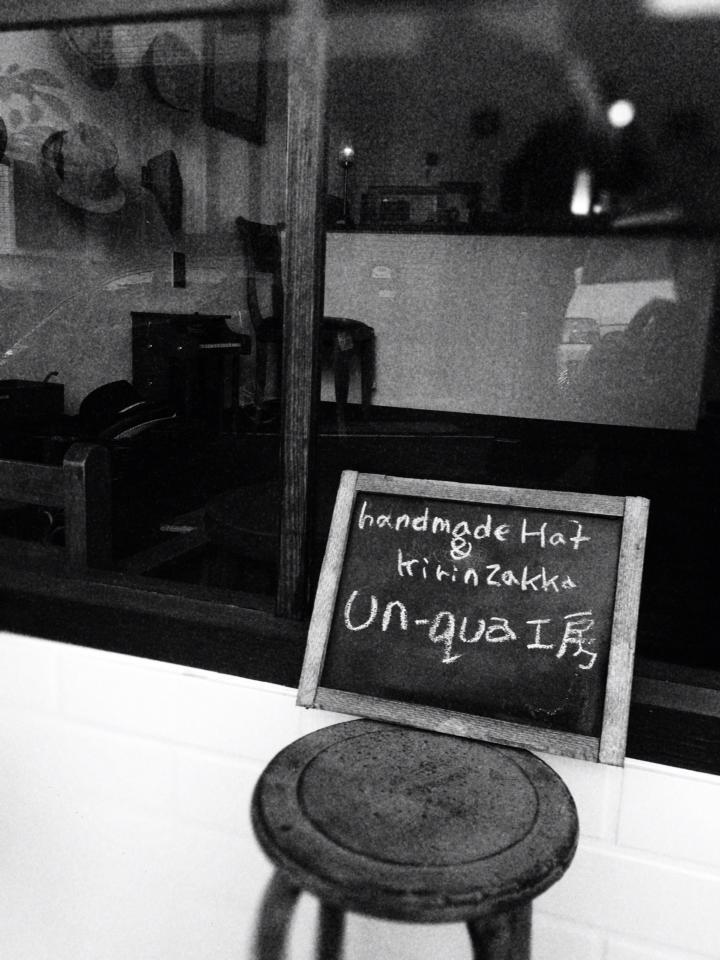 handmade Hat
&
kirin Zakka
Un-qua工房